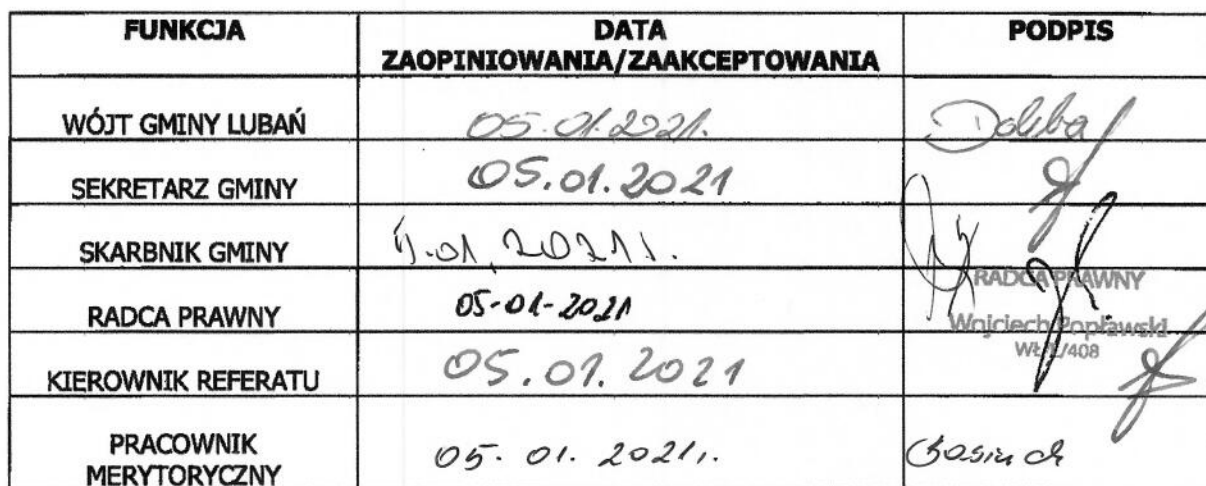 FUNKCJA DATA PODPIS
ZAOPINIOWANIA/ZAAKCEPTOWANIA
WÓJT GMINY LUBAŃ 05.01.2021.
SEKRETARZ GMINY 05.01.2021
SKARBNIK GMINY 5.01.2021r.
RADCA PRAWNY
RADCA PRAWNY 05-01-2021
Wojciech Popławski
KIEROWNIK REFERATU 05.01.2021
PRACOWNIK
MERYTORYCZNY 05.01.2021r.